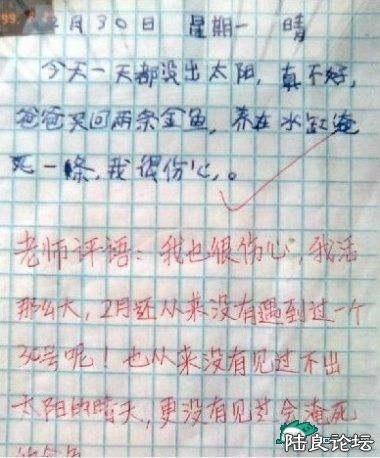 2月30日 星期一 晴
今天一天都没出太阳,真不好,
爸爸买回两条金鱼,养在水缸淹
死一條,我很伤心。
老师评语:我也很伤心,我活
那么大,2月还从来没有遇到过一个
30号呢!也从来没有见过不出
太阳的晴天,更没有见过会淹死
的金鱼
陆良论坛